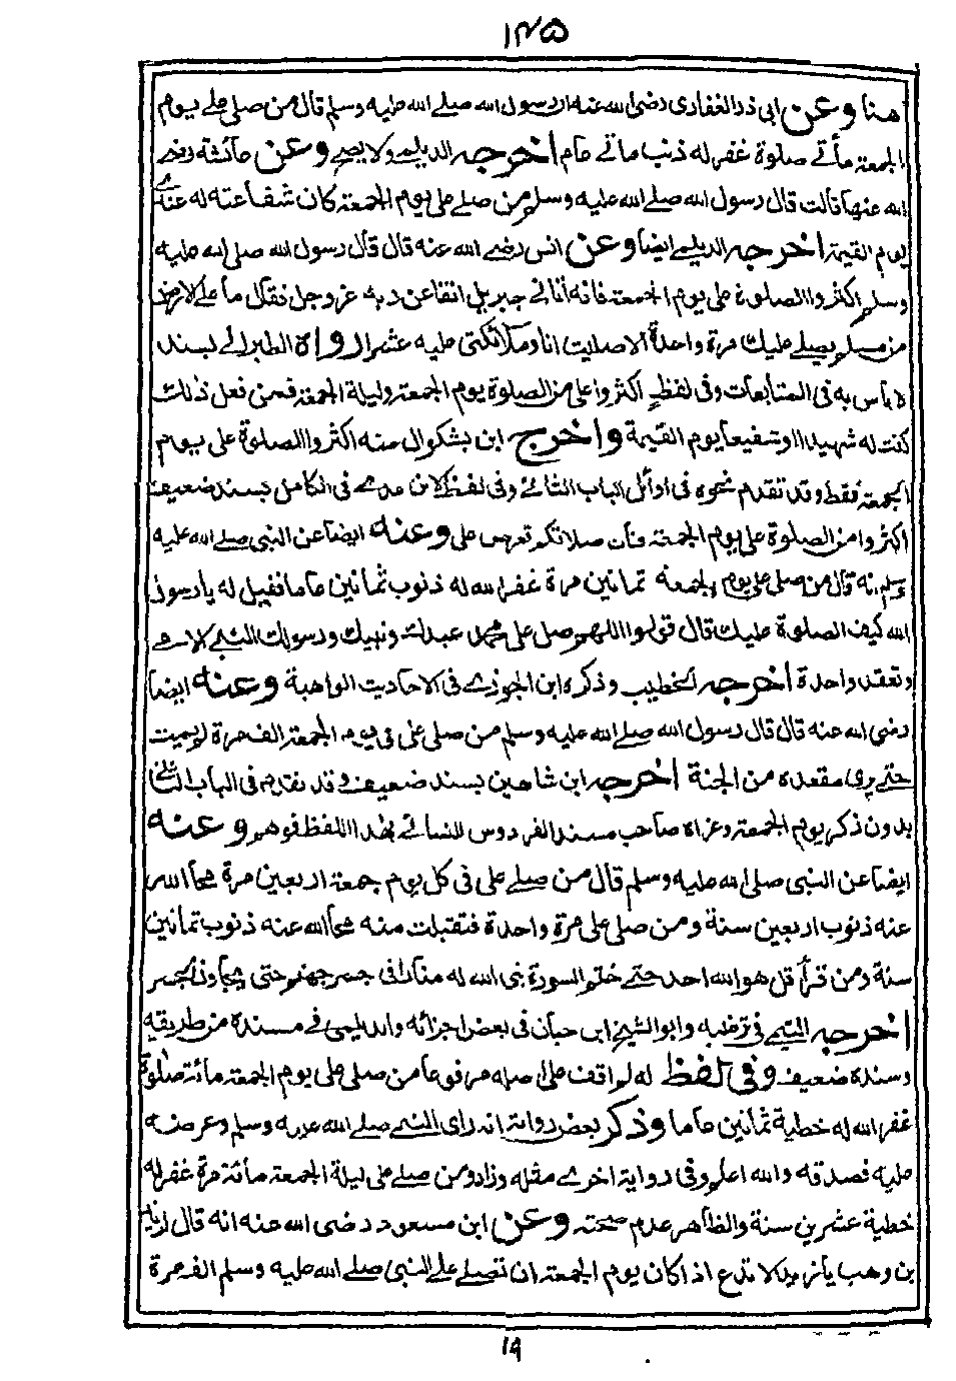 ١٤٥
هنا وعن ابى ذر الغفارى رضى الله عنه ان رسول الله صلے الله عليه وسلم قال من صلى علے يوم
الجمعة مأتے صلوة غفر له ذنب مأتے عام اخرجه الديلمے ولا يصح وعن عائشة رضے
الله عنها قالت قال رسول الله صلے الله عليه وسلم من صلے على يوم الجمعة كان شفاعته له عندے
يوم القيمة اخرجه الديلمے ايضا وعن انس رضے الله عنه قال قال رسول الله صلى الله عليه
وسلم اكثروا الصلوة على يوم الجمعة فانه أتانے جبريل انفا عن ربه عز وجل فقال ما علے الارض
من مسلم يصلے عليك مرة واحدة الا صليت انا وملائكتى عليه عشرا رواه الطبرانے بسند
لا بأس به فى المتابعات وفى لفظ اكثروا على من الصلوة يوم الجمعة وليلة الجمعة فمن فعل ذلك
كنت له شهيدا او شفيعا يوم القيمة واخرج ابن بشكوال منه اكثروا الصلوة على يوم
الجمعة فقط وقد تقدم نحوه فى اوائل الباب الثانے وفى لفظ لابن عدے فى الكامل بسند ضعيف
اكثروا من الصلوة على يوم الجمعة فان صلاتكم تعرض على وعنه ايضا عن النبى صلے الله عليه
وسلم انه قال من صلى على يوم الجمعة ثمانين مرة غفر الله له ذنوب ثمانين عاما فقيل له يا رسول
الله كيف الصلوة عليك قال قولوا اللهم صل على محمد عبدك ونبيك ورسولك النبے الامے
وتعقد واحدة اخرجه الخطيب وذكره ابن الجوزے فى الاحاديث الواهية وعنه ايضا
رضى الله عنه قال قال رسول الله صلے الله عليه وسلم من صلى على فى يوم الجمعة الف مرة لم يمت
حتے يرى مقعده من الجنة اخرجه ابن شاهين بسند ضعيف وقد تقدم فى الباب الثانى
بدون ذكر يوم الجمعة وعزاه صاحب مسند الفردوس للنسائے بهذا اللفظ فوهم وعنه
ايضا عن النبى صلى الله عليه وسلم قال من صلے على فى كل يوم جمعة اربعين مرة محا الله
عنه ذنوب اربعين سنة ومن صلى على مرة واحدة فتقبلت منه محا الله عنه ذنوب ثمانين
سنة ومن قرأ قل هو الله احد حتے ختم السورة بنى الله له منارا فى جسر جهنم حتى يجاوز الجسر
اخرجه التيمے فى ترغيبه وابو الشيخ ابن حبان فى بعض اجزائه والديلمى فے مسنده من طريقه
وسنده ضعيف وفى لفظ له لم اقف على اصله مرفوعا من صلى على يوم الجمعة مائة صلوة
غفر الله له خطية ثمانين عاما وذكر بعض رواته انه راى النبے صلے الله عليه وسلم وعرضه
عليه فصدقه والله اعلم وفى رواية اخرے مثله وزاد ومن صلے على ليلة الجمعة مائة مرة غفر له
خطية عشرين سنة والظاهر عدم صحته وعن ابن مسعود رضى الله عنه انه قال لزيد
بن وهب يا زيد لا تدع اذا كان يوم الجمعة ان تصلے على النبى صلے الله عليه وسلم الف مرة
١٩